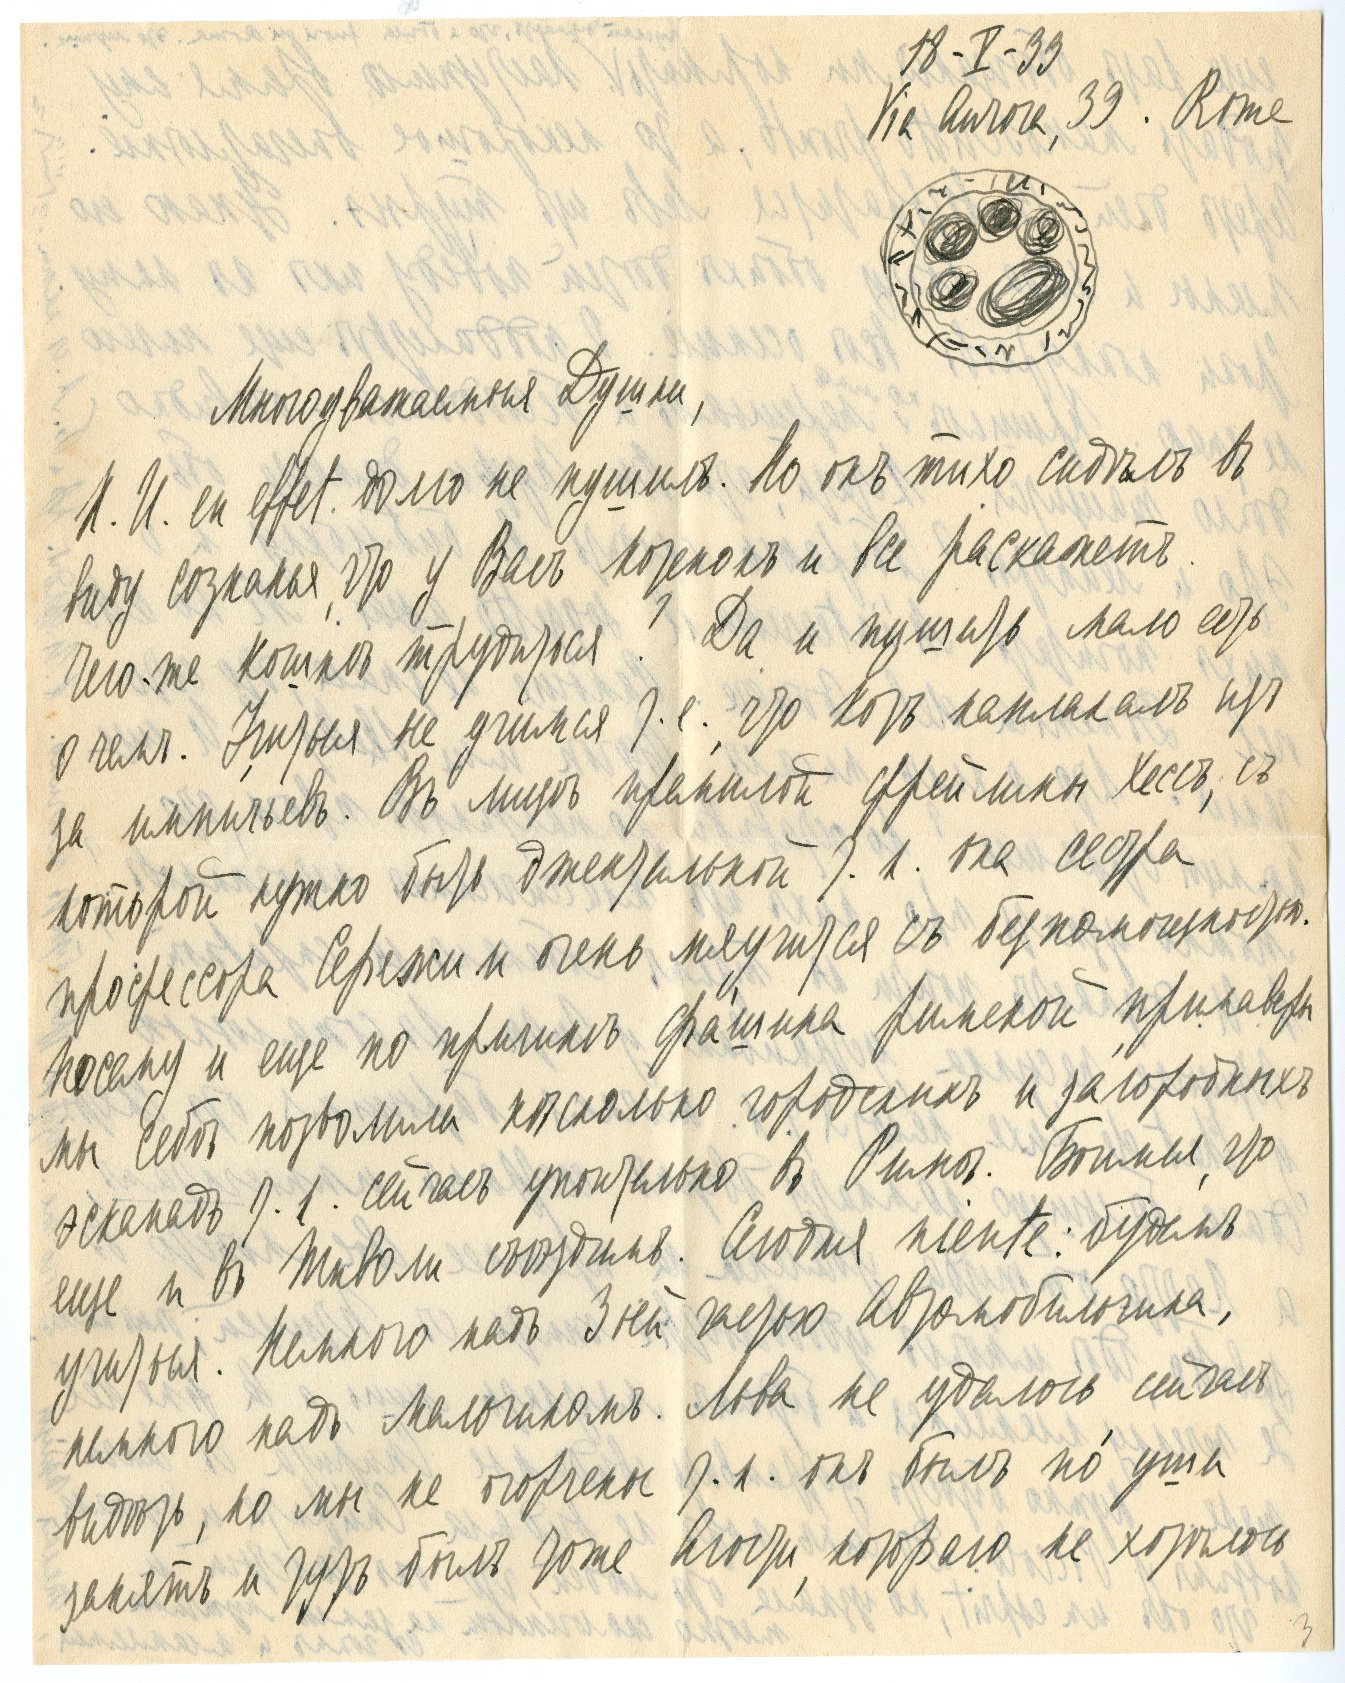 18-V-33
Via Aurora, 39. Rome
Многоуважаемыя Душки,
К. И. en effet. долго не пушилъ. Но онъ тихо сидѣлъ въ
виду сознанья, что у Васъ котенокъ и все раскажетъ.
Чего-же кошкѣ трудиться? Да и пушить мало есть
о чемъ. Учиться не учимся т. е., что котъ наплакалъ изъ
за импичьевъ. Въ лицѣ премилой фрейлины Хессъ, съ
которой нужно быть джентильной т. к. она сестра
профессора Сережи и очень мяучится съ безпомощностью.
Посему и еще по причинѣ фашика римской примаверы
мы себѣ позволили нѣсколько городскихъ и загородныхъ
эскападъ т. к. сейчасъ упоительно въ Римѣ. Боимся, что
еще и въ Тиволи съѣздимъ. Сегодня niente: будемъ
учиться. Немного надъ 3ей частью Автомобильчика,
немного надъ Мальчикомъ. Лова не удалось сейчасъ
видѣть, но мы не огорчены т. к. онъ былъ по уши
занятъ и тутъ былъ тоже Агости, котораго не хотѣлось
3